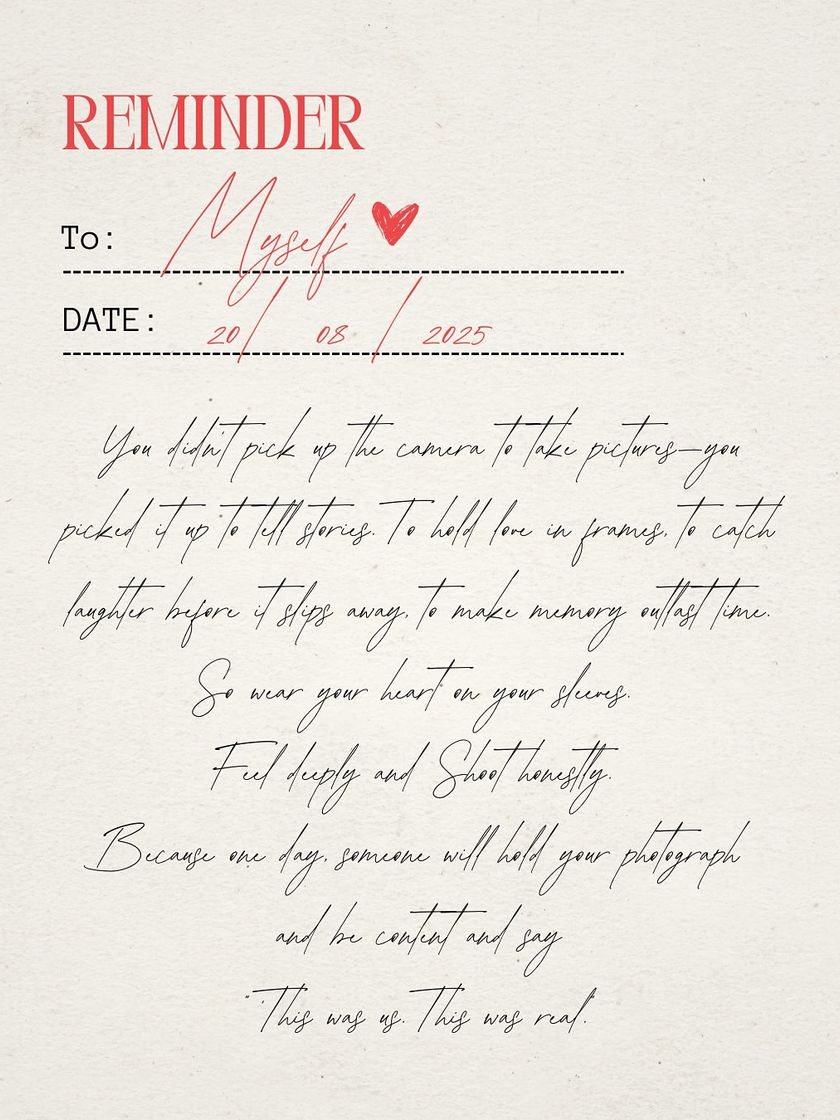 REMINDER
To: Myself
DATE: 20 / 08 / 2025
You didn't pick up the camera to take pictures—you
picked it up to tell stories. To hold love in frames, to catch
laughter before it slips away, to make memory outlast time.
So wear your heart on your sleeves.
Feel deeply and Shoot honestly.
Because one day, someone will hold your photograph
and be content and say
"This was us. This was real."